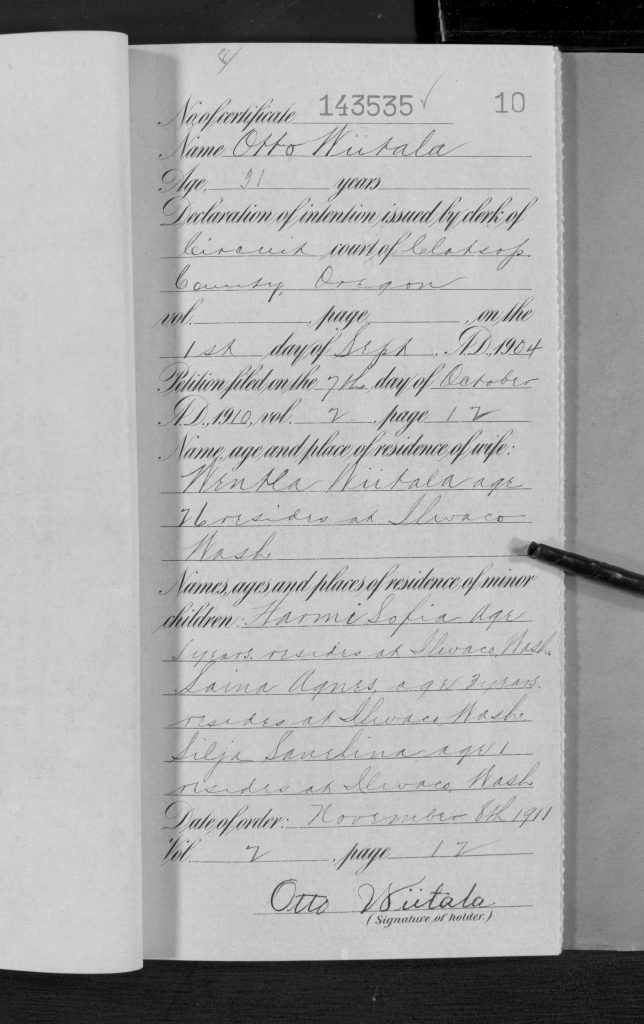 8
No. of certificate 143535 ✓ 10
Name Otto Wiitala
Age, 31 years
Declaration of intention issued by clerk of
Circuit court of Clatsop
County, Oregon
vol. , page , on the
1st day of Sept , A.D. 1904
Petition filed on the 7th day of October
A.D., 1910, vol. 2 , page 12
Name, age and place of residence of wife:
Wentla Wiitala age
26 resides at Ilwaco
Wash
Names, ages and places of residence of minor
children: Harmi Sofia age
years. resides at Ilwaco, Wash.
Saina Agnes, age 3 years.
resides at Ilwaco, Wash.
Silja Sanelina age 1
resides at Ilwaco, Wash
Date of order: November 8th 1911
Vol. 2 , page 12
Otto Wiitala
(Signature of holder.)